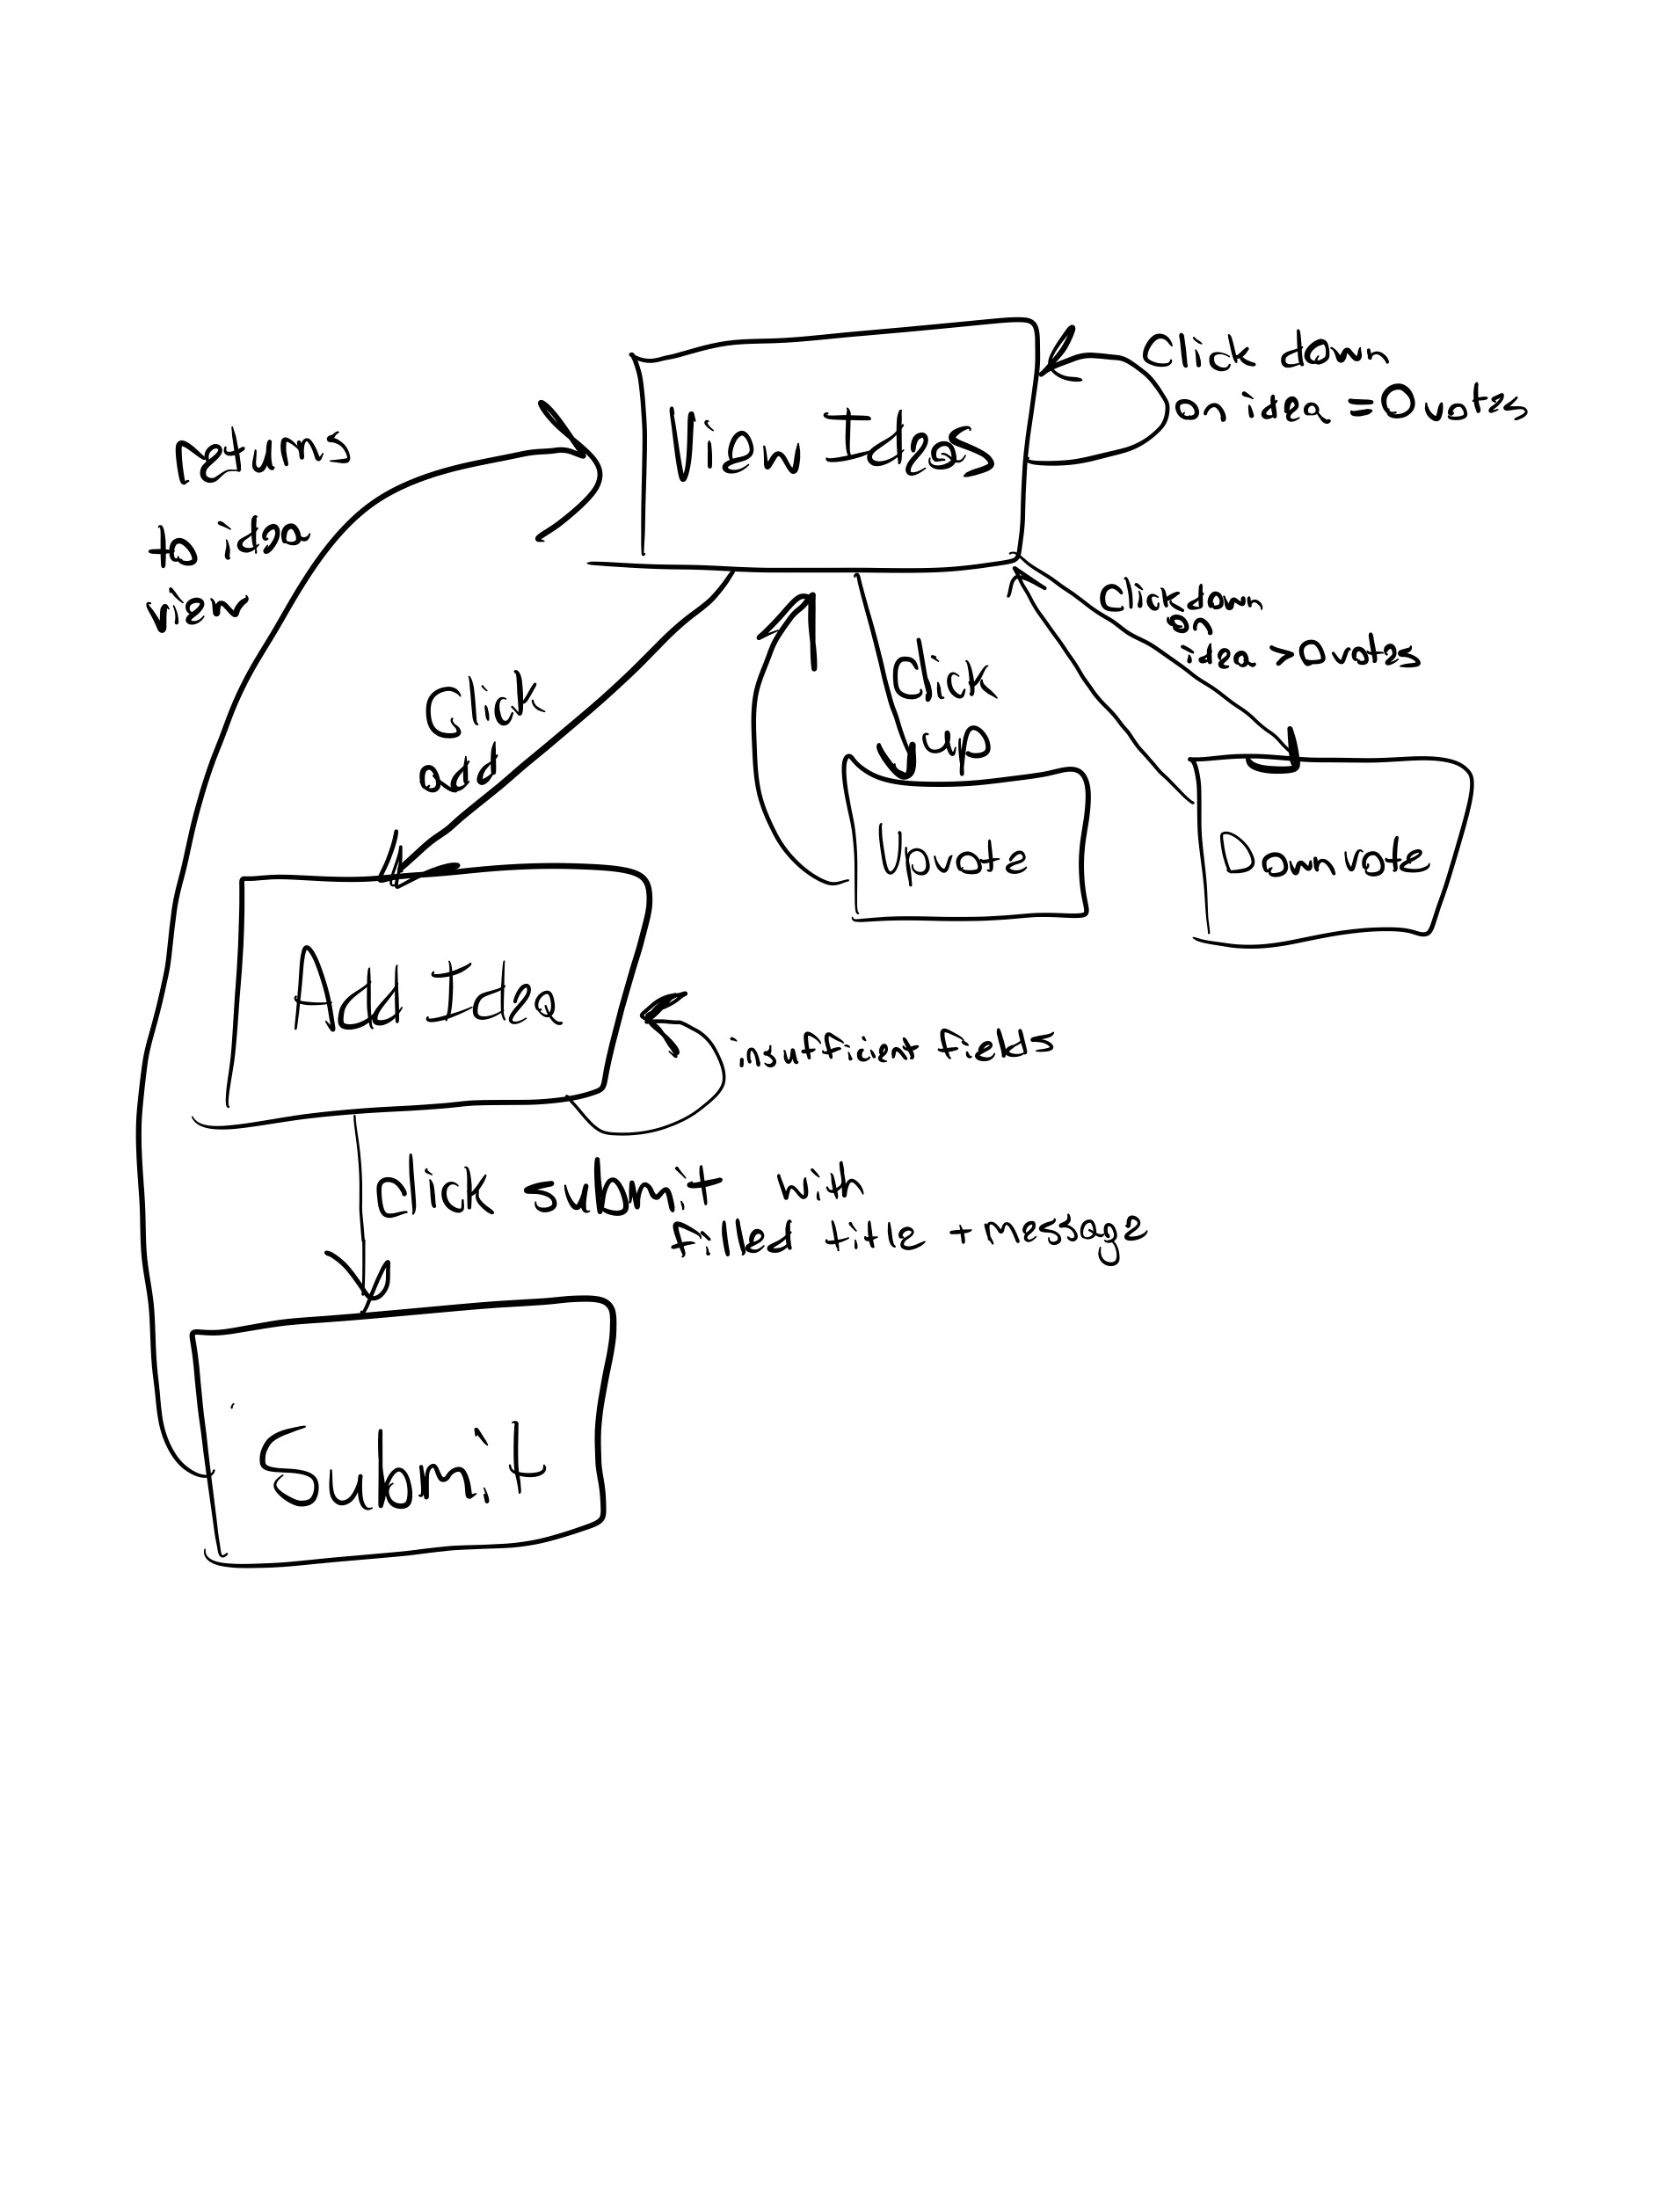 View Ideas
Click down
on idea =0 votes
returns
to idea
view
Click down
on
idea >0 votes
Click
add
Click
up
Upvote
Down Vote
Add Idea
insufficient fields
click submit with
filled title + message
Submit